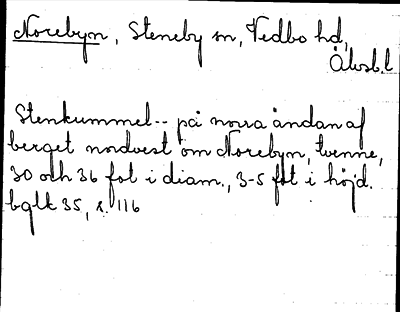 Norebyn, Steneby sn, Vedbo hd,
Älvsb.l
Stenkummel-- på norra ändan af
berget nordvest om Norebyn, tvenne,
30 och 36 fot i diam., 3-5 fot i höjd.
bglk 35, s. 116